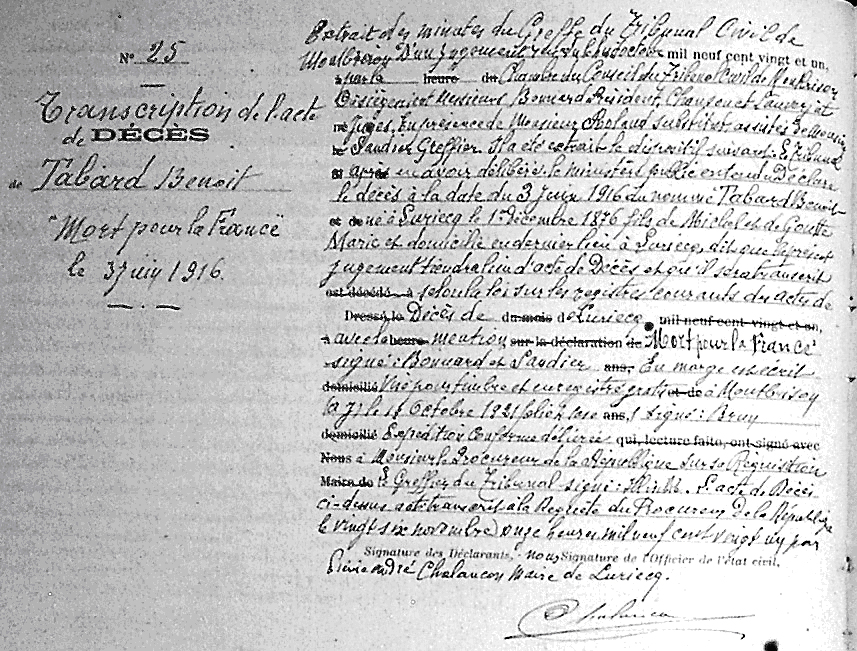 N° 25
Transcription de l'acte
de DÉCÈS
de Tabard Benoit
"Mort pour la France"
le 3 juin 1916.
Extrait des minutes du Greffe du Tribunal Civil de
Montbrison D'un jugement rendu le mil neuf cent vingt et un,
à heure du Chambre du Conseil du Tribunal Civil de Montbrison
Messieurs Bonnard Président, Chanson et
Juges, En présence de Monsieur Roland substitut, assistés de
Sandier Greffier Il a été extrait le dispositif suivant: Le Tribunal
après en avoir délibéré, le ministère public entendu Déclare
le décès à la date du 3 Juin 1916 du nommé Tabard Benoit
et de né à Luriecq le 1er Décembre 1876 fils de Michel et de
Marie et domicilié en dernier lieu à Luriecq, dit que le présent
jugement tiendra lieu d'acte de Décès et qu'il sera transcrit
est décédé à selon la loi sur les registres courants des actes de
Dressé le Décès de du mois de Luriecq mil neuf cent vingt et un,
à avec la heure mention sur la déclaration de Mort pour la France
signé: Bonnard et Sandier ans, En marge est écrit
domicilié Visé pour timbre et enregistré gratis et de à Montbrison
le 18 Octobre 1921 ans, signé: Bruy
domicilié Expédition conforme délivrée qui, lecture faite, ont signé avec
Nous à Monsieur le Procureur de la République sur sa Réquisition
Maire de Le Greffier du Tribunal signé: L'acte de Décès
ci-dessus a été transcrit à la Requête du Procureur de la République
le vingt six novembre onze heures mil neuf cent vingt un par
Signature des Déclarants, nous Signature de l'Officier de l'état civil,
Pierre André Chalancon Maire de Luriecq.
Chalancon